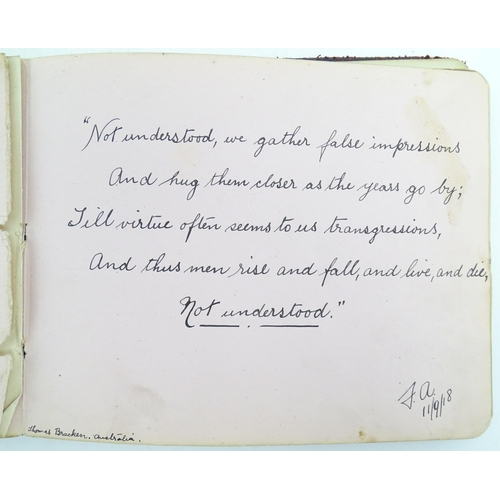 "Not understood, we gather false impressions
And hug them closer as the years go by;
Till virtue often seems to us transgressions,
And thus men rise and fall, and live, and die,
Not understood."
F. A.
11/9/18
Thomas Bracken, Australia.